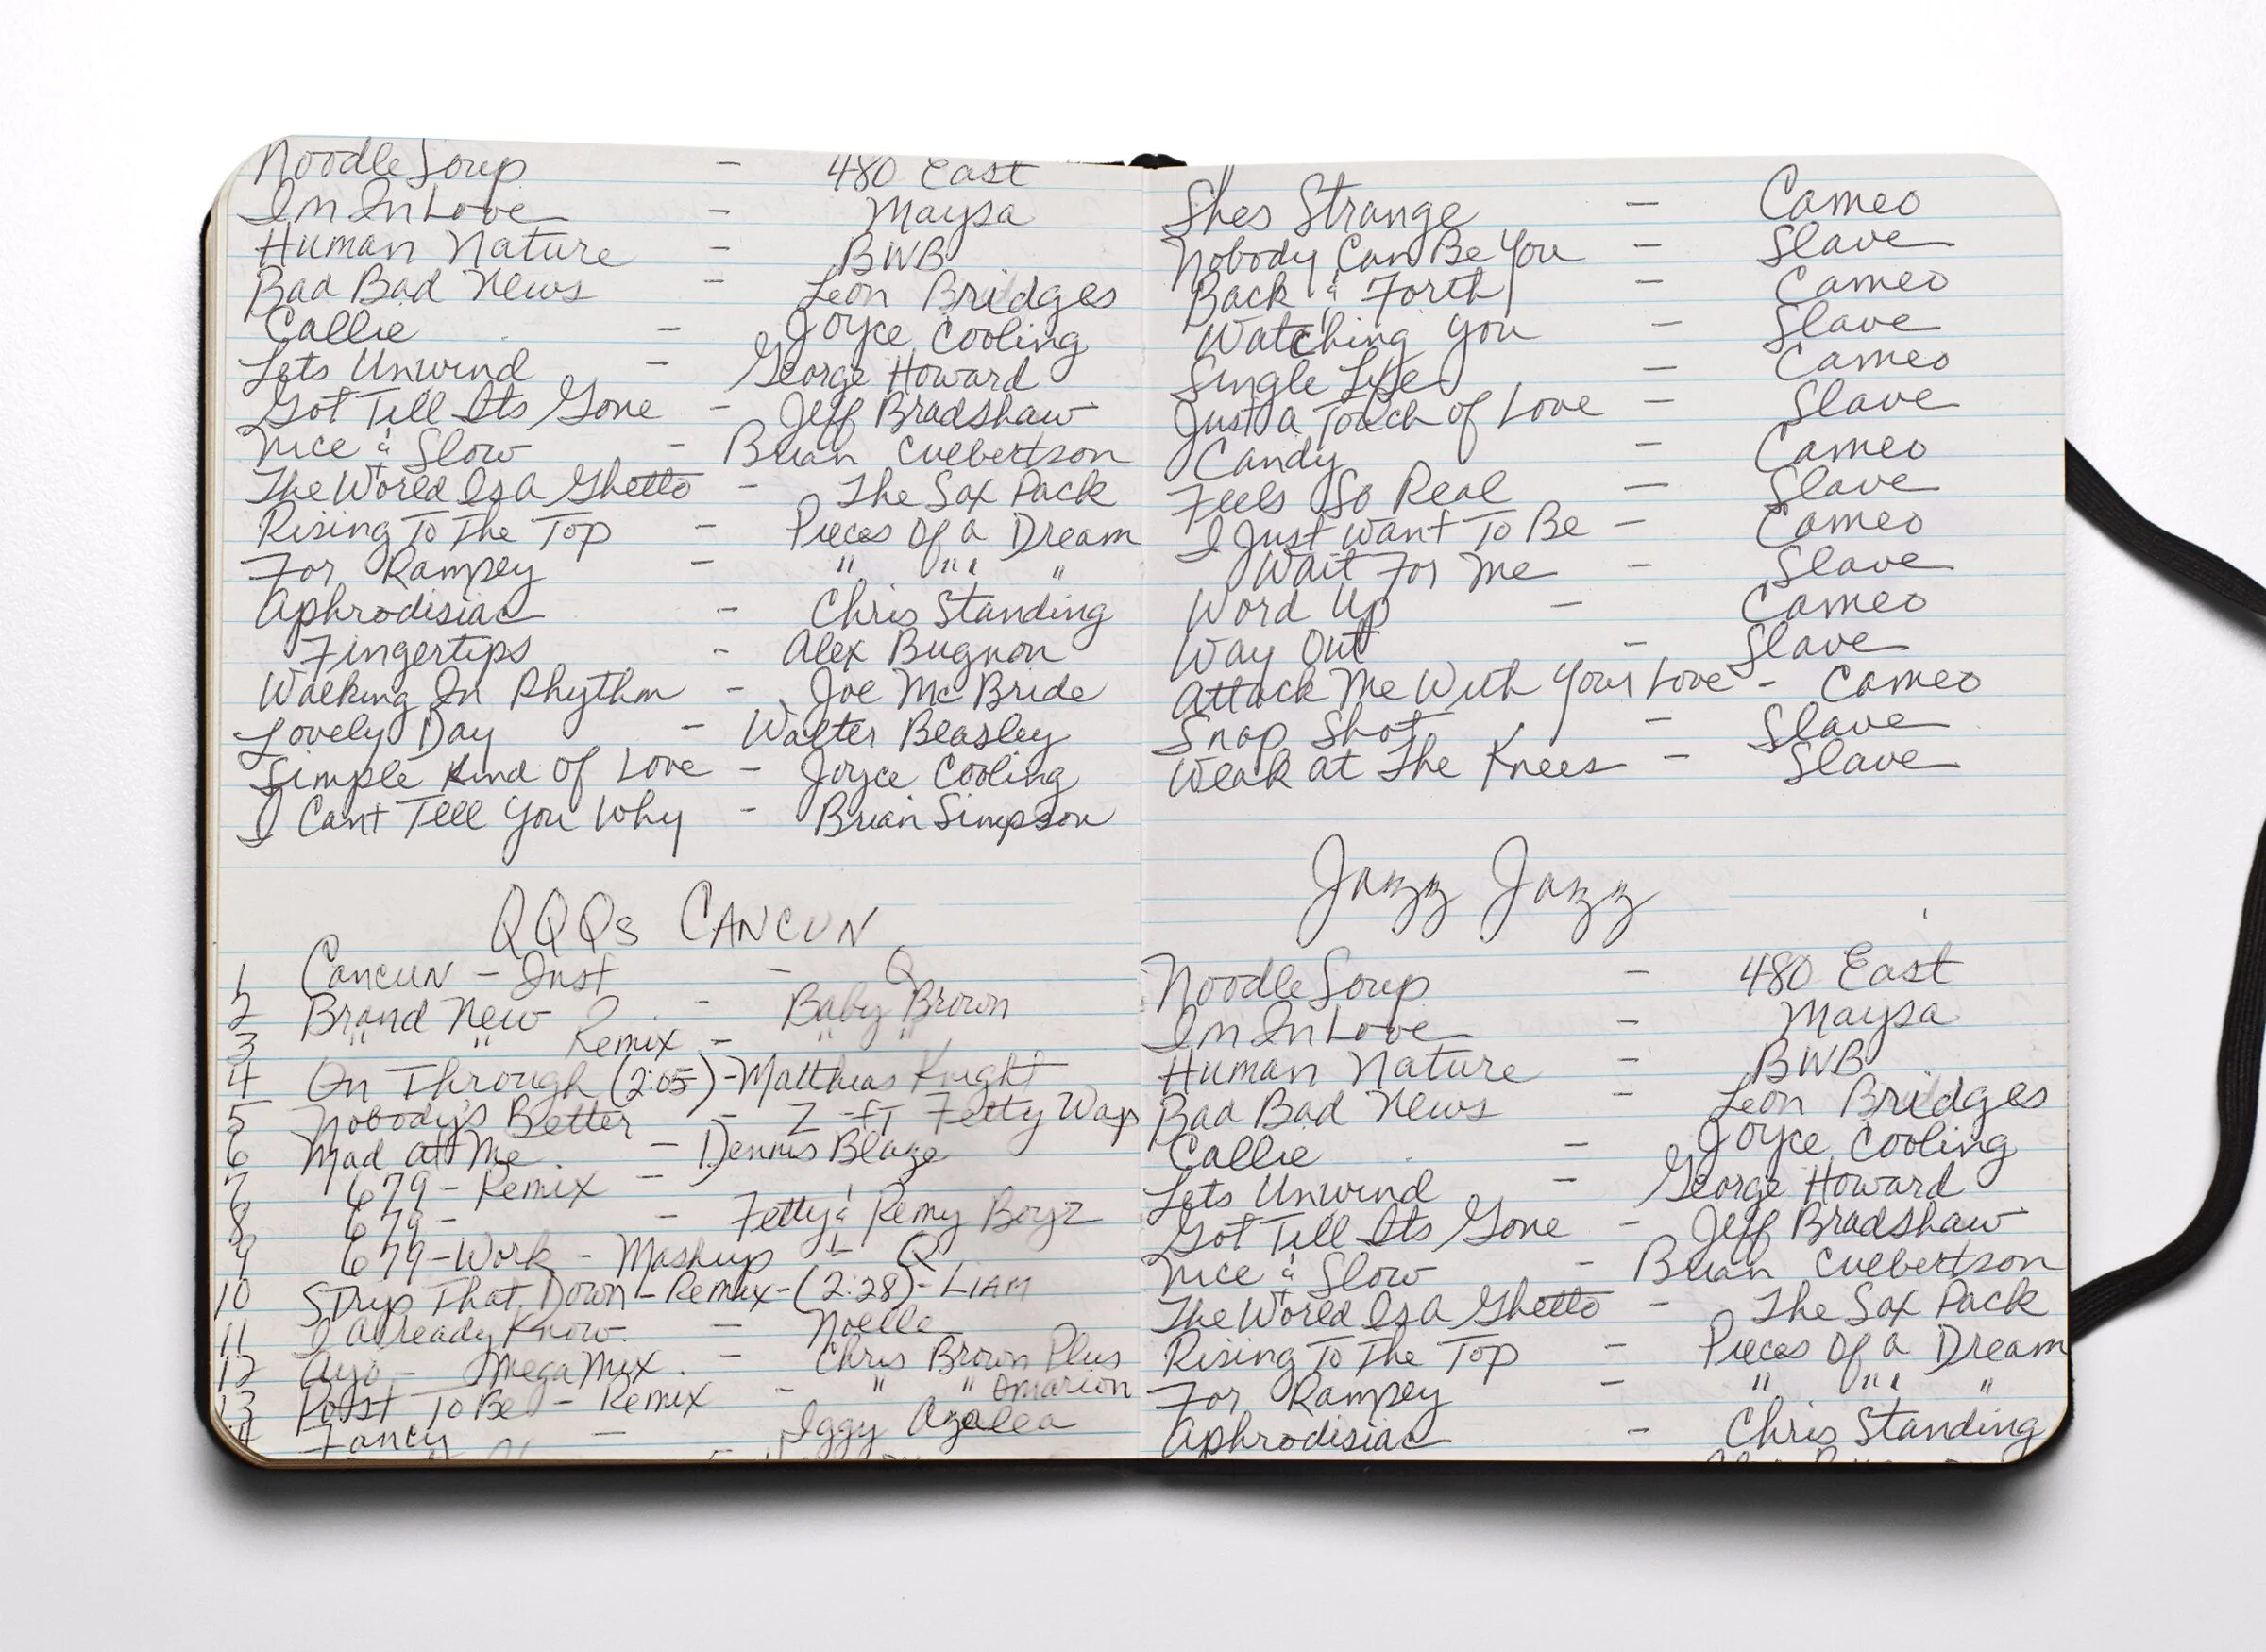 Noodle Soup - 480 East
Im In Love - Maysa
Human Nature - BWB
Bad Bad News - Leon Bridges
Callie - Joyce Cooling
Lets Unwind - George Howard
Got Till Its Gone - Jeff Bradshaw
Nice & Slow - Brian Culbertson
The World Is A Ghetto - The Sax Pack
Rising To The Top - Pieces Of a Dream
For Rampey - " " " "
Aphrodisiac - Chris Standing
Fingertips - Alex Bugnon
Walking In Rhythm - Joe McBride
Lovely Day - Walter Beasley
Simple Kind Of Love - Joyce Cooling
I Cant Tell You Why - Brian Simpson
QQQs CANCUN
1 Cancun - Inst - Q
2 Brand New - Baby Brown
3 " " Remix - " "
4 On Through (2:05) - Matthias Knight
5 Nobody's Better - Z - ft Fetty Wap
6 Mad at Me - Dennis Blaze
7 679 - Remix -
8 679 - - Fetty & Remy Boyz
9 679 - Work - Mashup - Q
10 Strip That Down - Remix - (2:28) - LIAM
11 I Already Know - Noelle
12 Ayo - MegaMix - Chris Brown Plus
13 Post To Be - Remix - " " Omarion
14 Fancy - Iggy Azalea
Shes Strange - Cameo
Nobody Can Be You - Slave
Back & Forth - Cameo
Watching You - Slave
Single Life - Cameo
Just a Touch of Love - Slave
Candy - Cameo
Feels So Real - Slave
I Just Want To Be - Cameo
Wait For Me - Slave
Word Up - Cameo
Way Out - Slave
Attack Me With Your Love - Cameo
Snap Shot - Slave
Weak at The Knees - Slave
Jazz Jazz
Noodle Soup - 480 East
Im In Love - Maysa
Human Nature - BWB
Bad Bad News - Leon Bridges
Callie - Joyce Cooling
Lets Unwind - George Howard
Got Till Its Gone - Jeff Bradshaw
Nice & Slow - Brian Culbertson
The World Is A Ghetto - The Sax Pack
Rising To The Top - Pieces Of a Dream
For Rampey - " " " "
Aphrodisiac - Chris Standing